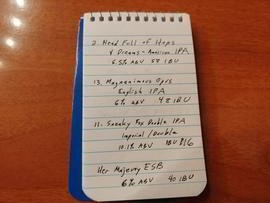 2. Head Full of Hops
& Dreams - American IPA
6.5% ABV 58 IBU
13. Magnanimous Opts
English IPA
6% ABV 48 IBU
11. Sneaky Fox Double IPA
Imperial/Double
10.1% ABV IBU 86
Her Majesty ESB
6% ABV 40 IBU